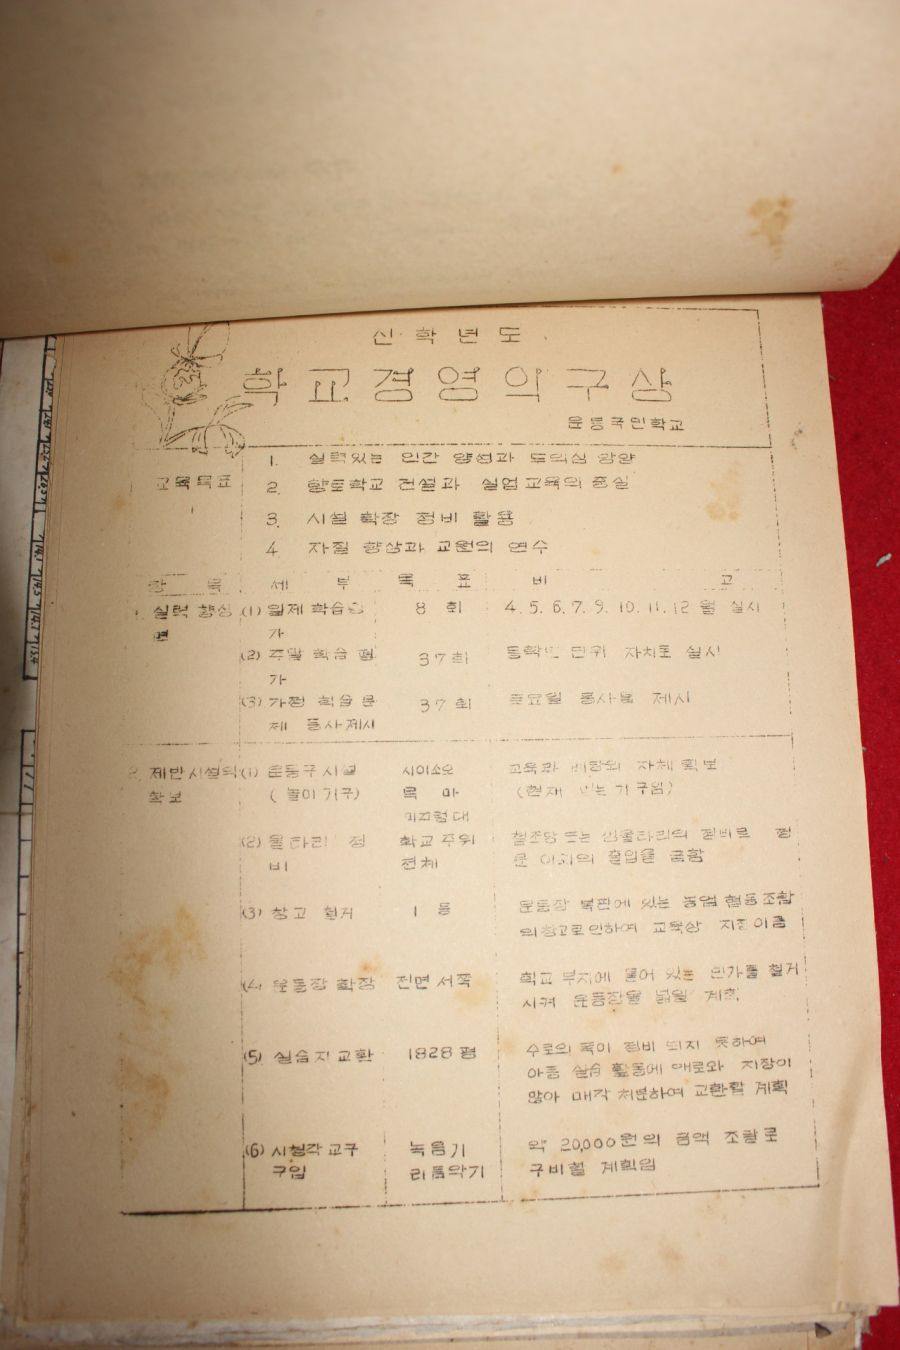 신학년도
학교경영의구상
운동국민학교
교육목표
1. 실력있는 인간 양성과 도의심 앙양
2. 향토학교 건설과 실업교육의 충실
3. 시설 확장 정비 활용
4 자질 향상과 교원의 연수
항목 세부 목표 비고
1. 실력 향상면
(1) 월례 학습평가 8 회 4. 5. 6. 7. 9. 10. 11. 12 월 실시
(2) 주말 학습 평가 37회 동학년 단위 자치로 실시
(3) 가정 학습 문제 등사제시 37회 토요일 등사 제시
2. 제반시설의 확보
(1) 운동구시설 (놀이기구) 시이소오 목마 교육과 자체 확보 (현재 기구임)
(2) 울타리 정비 학교주위 전체 철조망 또는 정비로 정문 이외의 출입을 금함
(3) 창고 철거 1 동 운동장 복판에 있는 농업협동조합의창고로인하여 교육상 지장이큼
(4) 운동장 확장 전면서쪽 학교 부지에 들어 있는 민가를 철거시켜 운동장을 넓힐 계획
(5) 실습지교환 1828평 수로의 폭이 정비 되지 못하여 아동 실습 활동에 애로와 지장이 많아 매각 처분하여 교환할 계획
(6) 시청각교구 구입 녹음기 리듬악기 약 20,000원의 금액 조달로 구비할 계획임